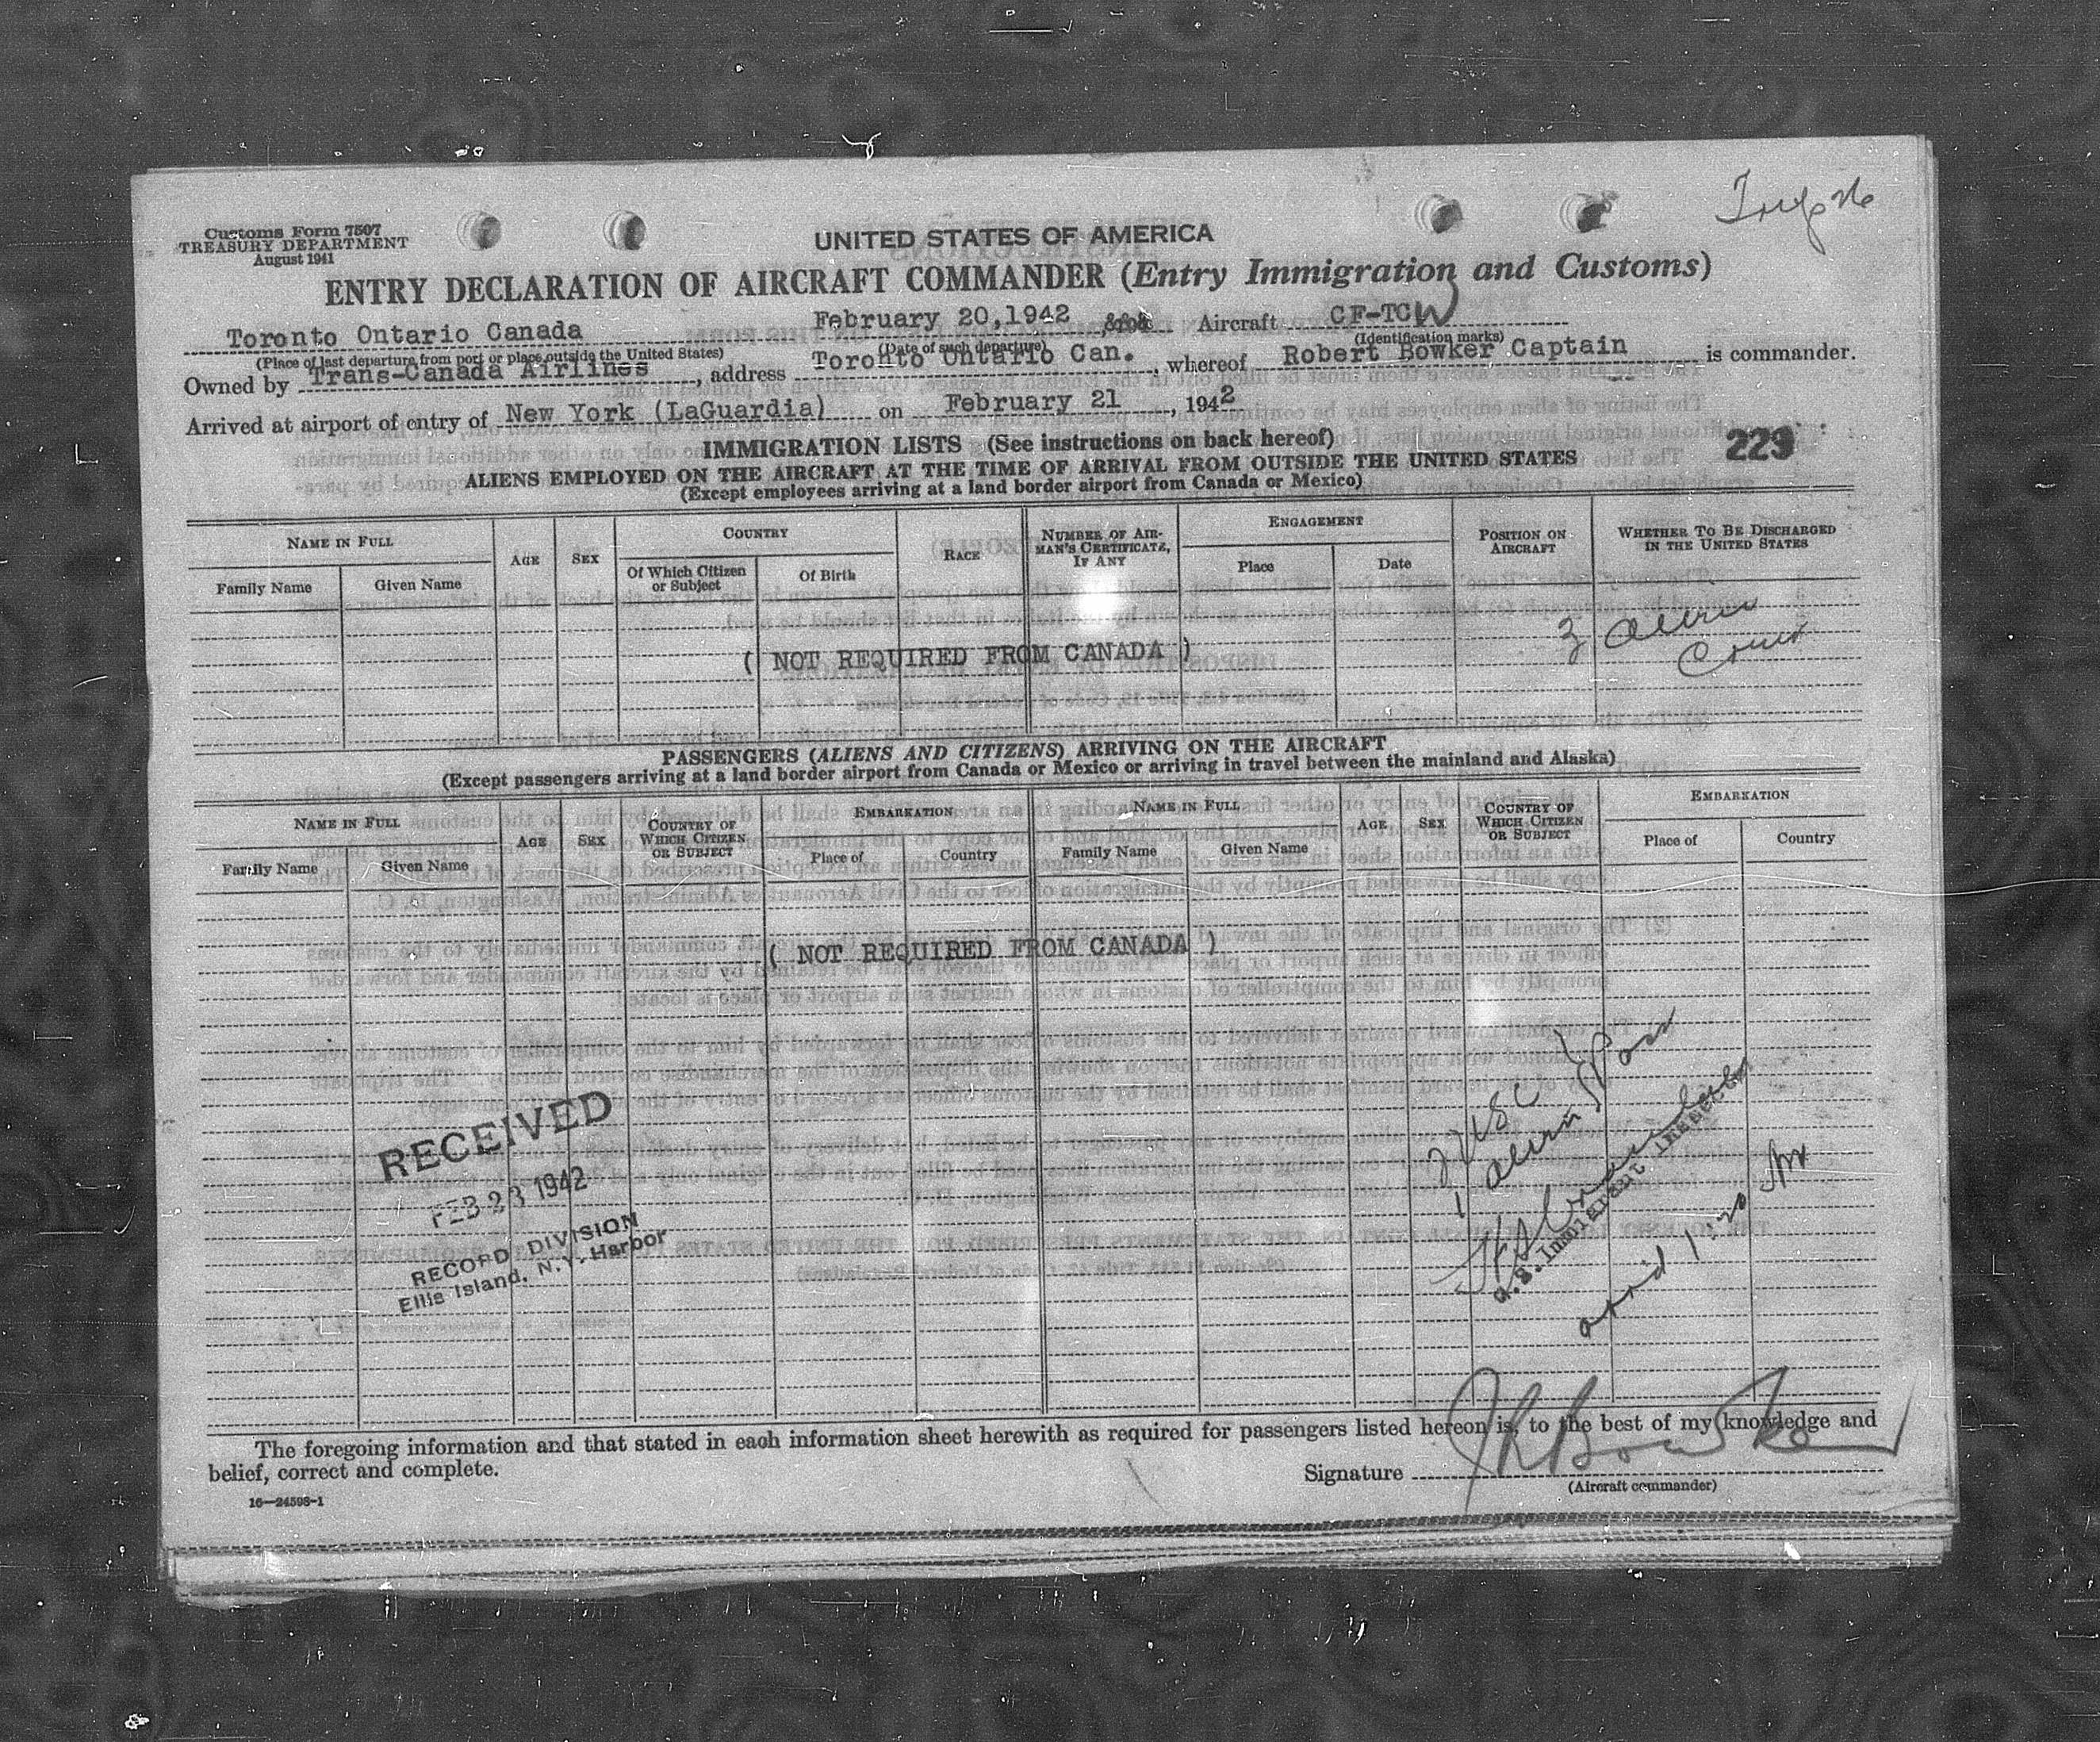 Customs Form 7507
TREASURY DEPARTMENT
August 1941
UNITED STATES OF AMERICA
ENTRY DECLARATION OF AIRCRAFT COMMANDER (Entry Immigration and Customs)
Toronto Ontario Canada February 20,1942 Aircraft CF-TCW
(Place of last departure from port or place outside the United States) (Date of such departure) (Identification marks)
Owned by Trans-Canada Airlines, address Toronto Ontario Can., whereof Robert Bowker Captain is commander.
Arrived at airport of entry of New York (LaGuardia) on February 21, 1942
IMMIGRATION LISTS (See instructions on back hereof)
229
ALIENS EMPLOYED ON THE AIRCRAFT AT THE TIME OF ARRIVAL FROM OUTSIDE THE UNITED STATES
(Except employees arriving at a land border airport from Canada or Mexico)
NAME IN FULL AGE SEX COUNTRY RACE NUMBER OF AIRMAN'S CERTIFICATE, IF ANY ENGAGEMENT POSITION ON AIRCRAFT WHETHER TO BE DISCHARGED IN THE UNITED STATES
Family Name Given Name Of Which Citizen or Subject Of Birth Place Date
3 Alien
Crew
( NOT REQUIRED FROM CANADA )
PASSENGERS (ALIENS AND CITIZENS) ARRIVING ON THE AIRCRAFT
(Except passengers arriving at a land border airport from Canada or Mexico or arriving in travel between the mainland and Alaska)
NAME IN FULL AGE SEX COUNTRY OF WHICH CITIZEN OR SUBJECT EMBARKATION NAME IN FULL AGE SEX COUNTRY OF WHICH CITIZEN OR SUBJECT EMBARKATION
Family Name Given Name Place of Country Family Name Given Name Place of Country
( NOT REQUIRED FROM CANADA )
2 USC
1 Alien } Pass
U.S. Immigrant Inspector
arrid 1:20 AM
RECEIVED
FEB 23 1942
RECORD DIVISION
Ellis Island, N.Y. Harbor
The foregoing information and that stated in each information sheet herewith as required for passengers listed hereon is, to the best of my knowledge and
belief, correct and complete.
Signature R Bowker
(Aircraft commander)
16—24598-1